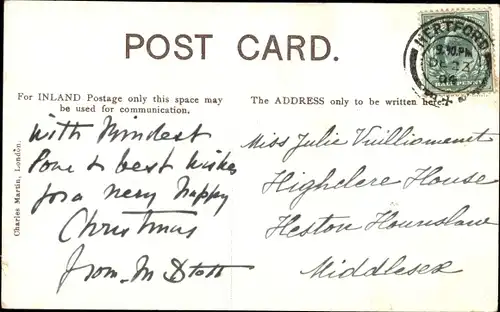 POST CARD.
HERTFORD
9.30 PM
DE 23
06
HALF PENNY
For INLAND Postage only this space may
be used for communication.
The ADDRESS only to be written here.
Charles Martin, London.
With Kindest
Love & best wishes
for a very happy
Christmas
from M Stott
Miss Julie Vuilliomenet
Highclere House
Heston Hounslow
Middlesex